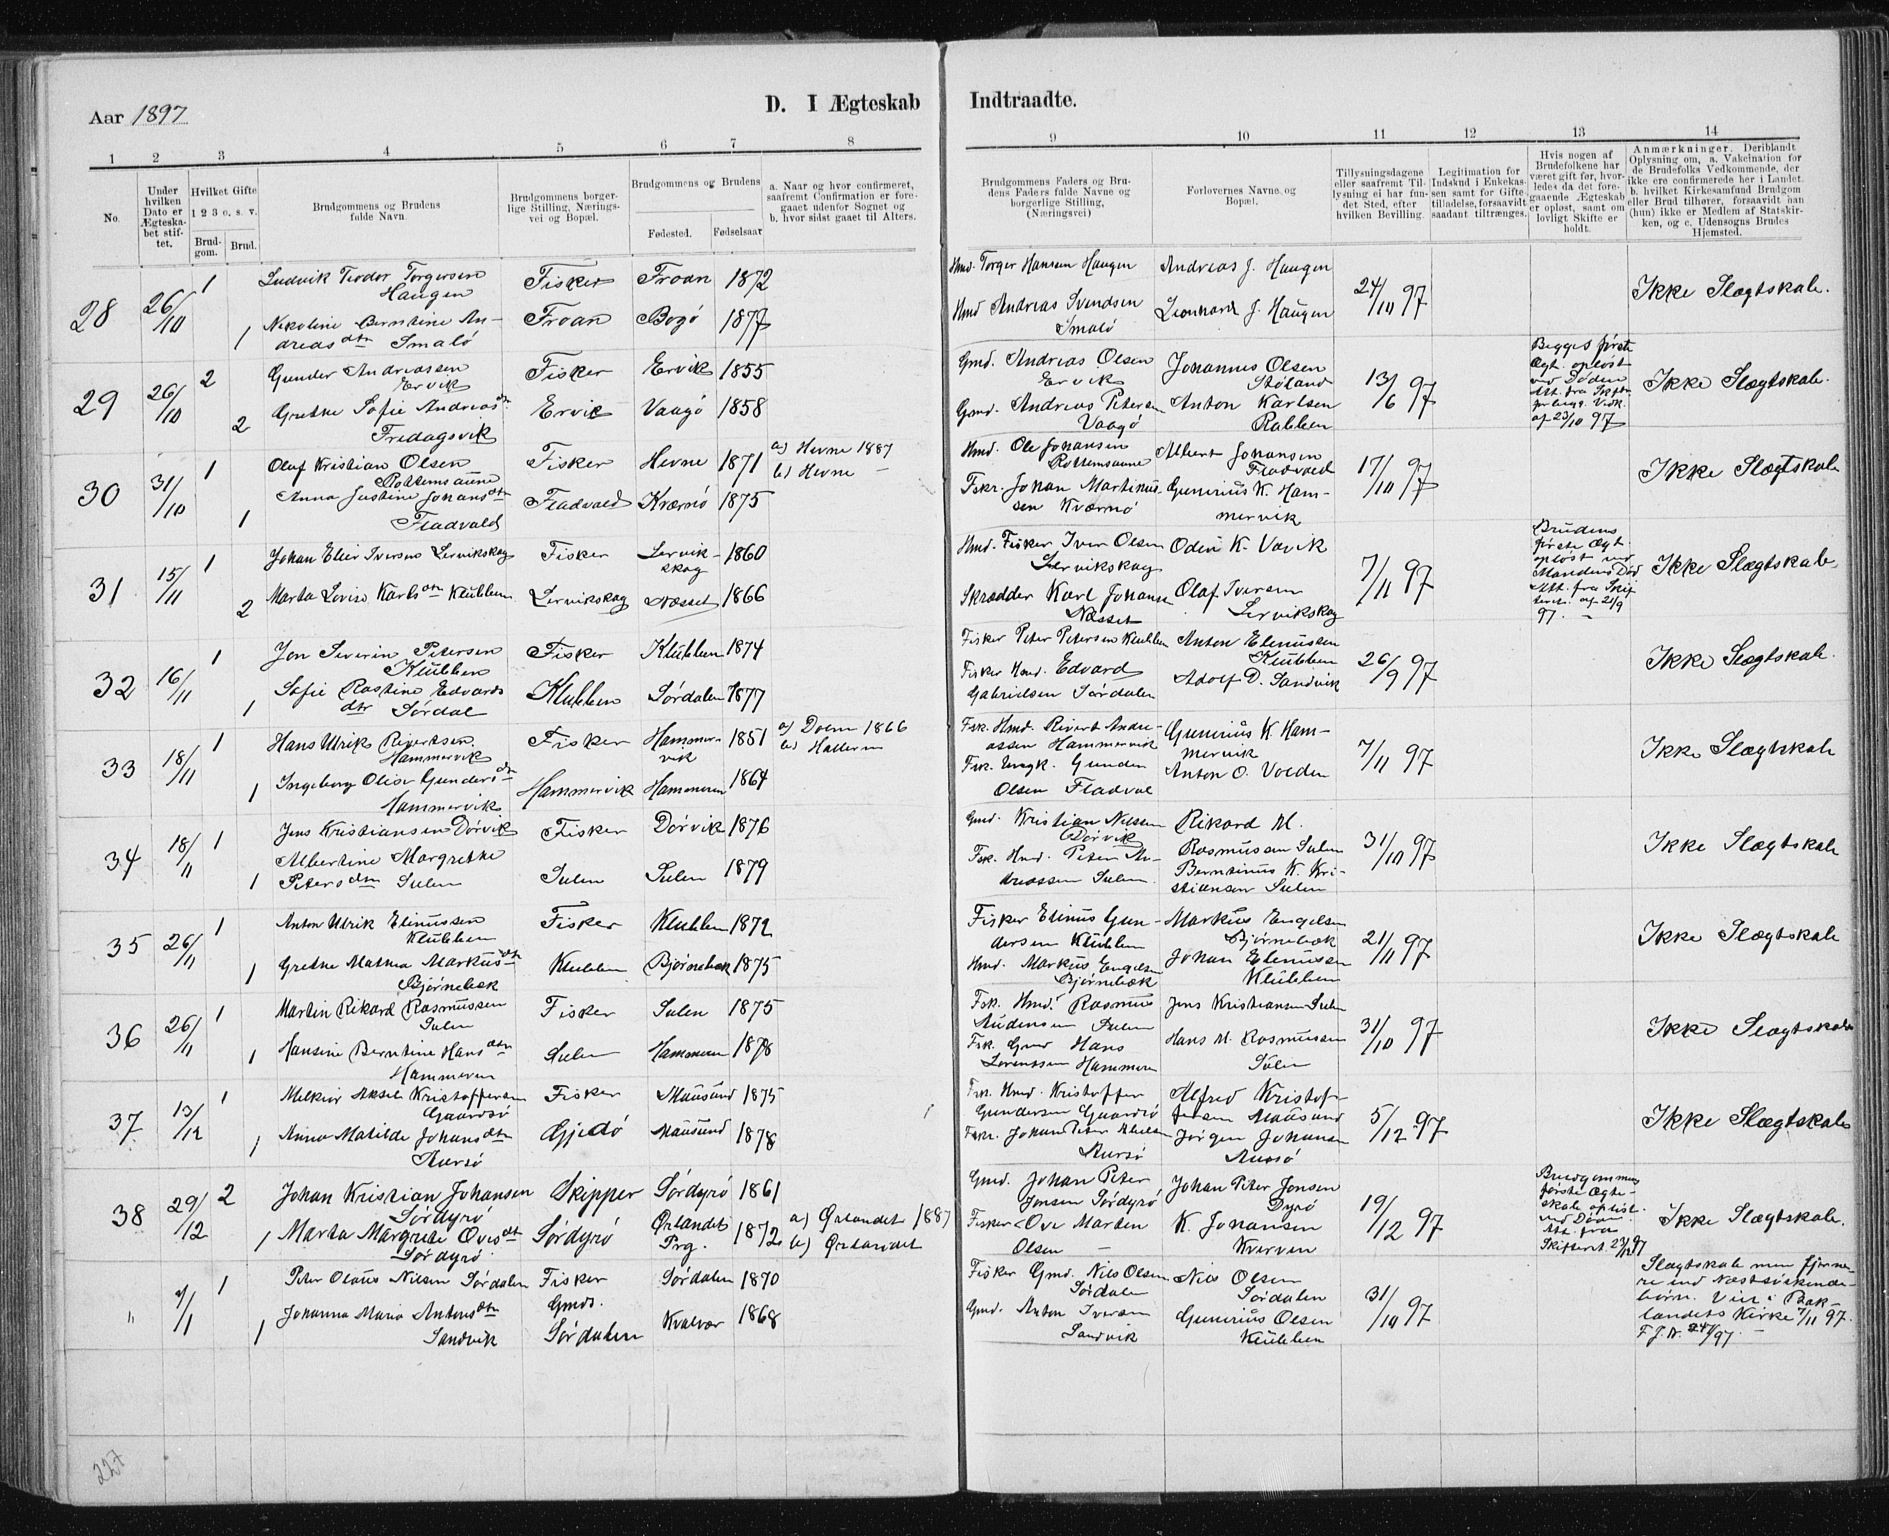 Aar 1897
D. I Ægteskab Indtraadte.
1 2 3 4 5 6 7 8 9 10 11 12 13 14
No.
Under hvilken Dato er Ægteskabet stiftet.
Hvilket Gifte
1 2 3 o. s. v.
Brudgom. Brud.
Brudgommens og Brudens fulde Navn.
Brudgommens borgerlige Stilling, Næringsvei og Bopæl.
Brudgommens og Brudens
Fødested. Fødselsaar
a. Naar og hvor confirmeret, saafremt Confirmation er foregaaet udenfor Sognet og
b. hvor sidst gaaet til Alters.
Brudgommens Faders og Brudens Faders fulde Navne og borgerlige Stilling, (Næringsvei)
Forlovernes Navne og Bopæl.
Tillysningsdagene eller saafremt Tillysning ei har fundet Sted, efter hvilken Bevilling.
Legitimation for Indskud i Enkekassen samt for Giftetilladelse, forsaavidt saadant tiltrænges.
Hvis nogen af Brudefolkene har været gift før, hvorledes da det foregaaende Ægteskab er opløst, samt om lovligt Skifte er holdt.
Anmærkninger. Deriblandt Oplysning om, a. Vakcination for de Brudefolks Vedkommende, der ikke ere confirmerede her i Landet. b. hvilket Kirkesamfund Brudgom eller Brud tilhører, forsaavidt han (hun) ikke er Medlem af Statskirken, og c. Udensogns Brudes Hjemsted.
28 26/10 1 Ludvik Teodor Torgersen Haugen Fisker Froan 1872 Hmd. Torger Hansen Haugen Andreas J. Haugen 24/10 97 Ikke Slægtskab.
1 Nikoline Berntine Andreasdtr Smalø Froan Bogø 1877 Hmd Andreas Svendsen Smalø Leonhard J. Haugen
29 26/10 2 Gunder Andreassen Ervik Fisker Ervik 1855 Gmd. Andreas Olsen Ervik Johannus Olsen Støland 13/6 97 Begges første Ægt. opløst ved Døden Att. fra Skift. af 23/10 97 Ikke Slægtskab.
2 Grethe Sofie Andreasdtr Fredagsvik Ervik Vaagø 1858 Gmd. Andreas Petersen Vaagø Anton Karlsen Rabben
30 31/10 1 Olaf Kristian Olsen Rottemsaune Fisker Hevne 1871 a) Hevne 1887 b) Hevne – Hmd. Ole Johansen Rottemsaune Albert Johansen Fladvald 17/10 97 Ikke Slægtskab
1 Anna Justine Johansdtr Fladvald Fladvald Kværnø 1875 Fskr. Johan Martinussen Kværnø Gunerius K. Hammervik
31 15/11 1 Johan Elier Iversen Lervikskag Fisker Lervikskag 1860 Hmd. Fisker Iver Olsen Lervikskag Odin K. Vavik 7/11 97 Brudens første Ægt. opløst ved Mandens Død Att. fra Skifteret. af 21/9 97. – Ikke Slægtskab.
2 Marta Lovise Karlsdtr Klubben Lervikskag Næsset 1866 Skrædder Karl Johansen Næsset Olaf Iversen Lervikskag
32 16/11 1 Jon Severin Petersen Klubben Fisker Klubben 1874 Fisker Peter Petersen Klubben Anton Elenussen Klubben 26/9 97 Ikke Slægtskab.
1 Sofie Rastine Edvardsdtr Sørdal Klubben Sørdalen 1877 Fisker Hmd. Edvard Gabrielsen Sørdalen Adolf D. Sandvik
33 18/11 1 Hans Ulrik Rivertsen Hammervik Fisker Hammervik 1851 a) Dolm 1866 b) Halleren Fsk. Hmd. Rivert Andreassen Hammervik Gunerius K. Hammervik 7/11 97 Ikke Slægtskab
1 Ingeborg Olise Gundersdtr Hammervik Hammervik Hammeren 1864 Fsk. Gunder Olsen Fladval Anton O. Volden
34 18/11 1 Jens Kristiansen Dørvik Fisker Dørvik 1876 Gmd. Kristian Nilssen Dørvik Rikard M. Rasmussen Sulen 31/10 97 Ikke Slægtskab
1 Albertine Margrethe Petersdtr Sulen Sulen Sulen 1879 Fsk. Hmd. Peter Andreassen Sulen Berntinus K. Kristiansen Sulen
35 26/11 1 Anton Ulrik Elinussen Klubben Fisker Klubben 1872 Fisker Elinus Gundersen Klubben Markus Engelsen Bjørnebæk 21/11 97 Ikke Slægtskab
1 Grethe Mathea Markusdtr Bjørnebæk Klubben Bjørnebæk 1875 Hmd. Markus Engelsen Bjørnebæk Johan Elenussen Klubben
36 26/11 1 Martin Rikard Rasmussen Sulen Fisker Sulen 1875 Fsk. Hmd. Rasmus Audensen Sulen Jens Kristiansen Sulen 31/10 97 Ikke Slægtskab
1 Hansine Berntine Hansdtr Hammeren Sulen Hammeren 1878 Fsk. Gmd Hans Lorentssen Hammeren Hans M. Rasmussen Sulen
37 13/12 1 Melkior Aksel Kristoffersen Gaardsø Fisker Mausund 1875 Fsk. Hmd. Kristoffer Gundersen Gaardsø Alfred Kristoffersen Mausund 5/12 97 Ikke Slægtskab
1 Anna Matilde Johansdtr Aursø Gjedø Mausund 1878 Fskr. Johan Peter Aursø Jørgen Johansen Aursø
38 29/12 2 Johan Kristian Johansen Sørdyrø Skipper Sørdyrø 1861 Gmd. Johan Peter Jonsen Sørdyrø Johan Peter Jonsen Dyrø 19/12 97 Brudgommens første Ægteskab opløst ved Døden. Att. fra Skifteret. 23/12 97 Ikke Slægtskab.
1 Marta Margrete Ovesdtr Sørdyrø Sørdyrø Ørlandet Prg. 1872 a) Ørlandet 1887 b) Ørlandet Fisker Ove Morten Olsen – K. Johansen Kverven
" 7/11 1 Peter Olaus Nilsen Sørdalen Fisker Gmds. Sørdalen 1870 Fisker Gmd. Nils Olsen Sørdalen Nils Olsen Sørdalen 31/10 97 Slægtskab men fjernere end Næstsøskendebørn. Viet i Baklandets Kirke 7/11 97. F. J. N. 97. –
1 Johanna Maria Antonsdtr Sandvik Sørdalen Kvalvær 1868 Gmd. Anton Iversen Sandvik Gunerius Olsen Klubben
227